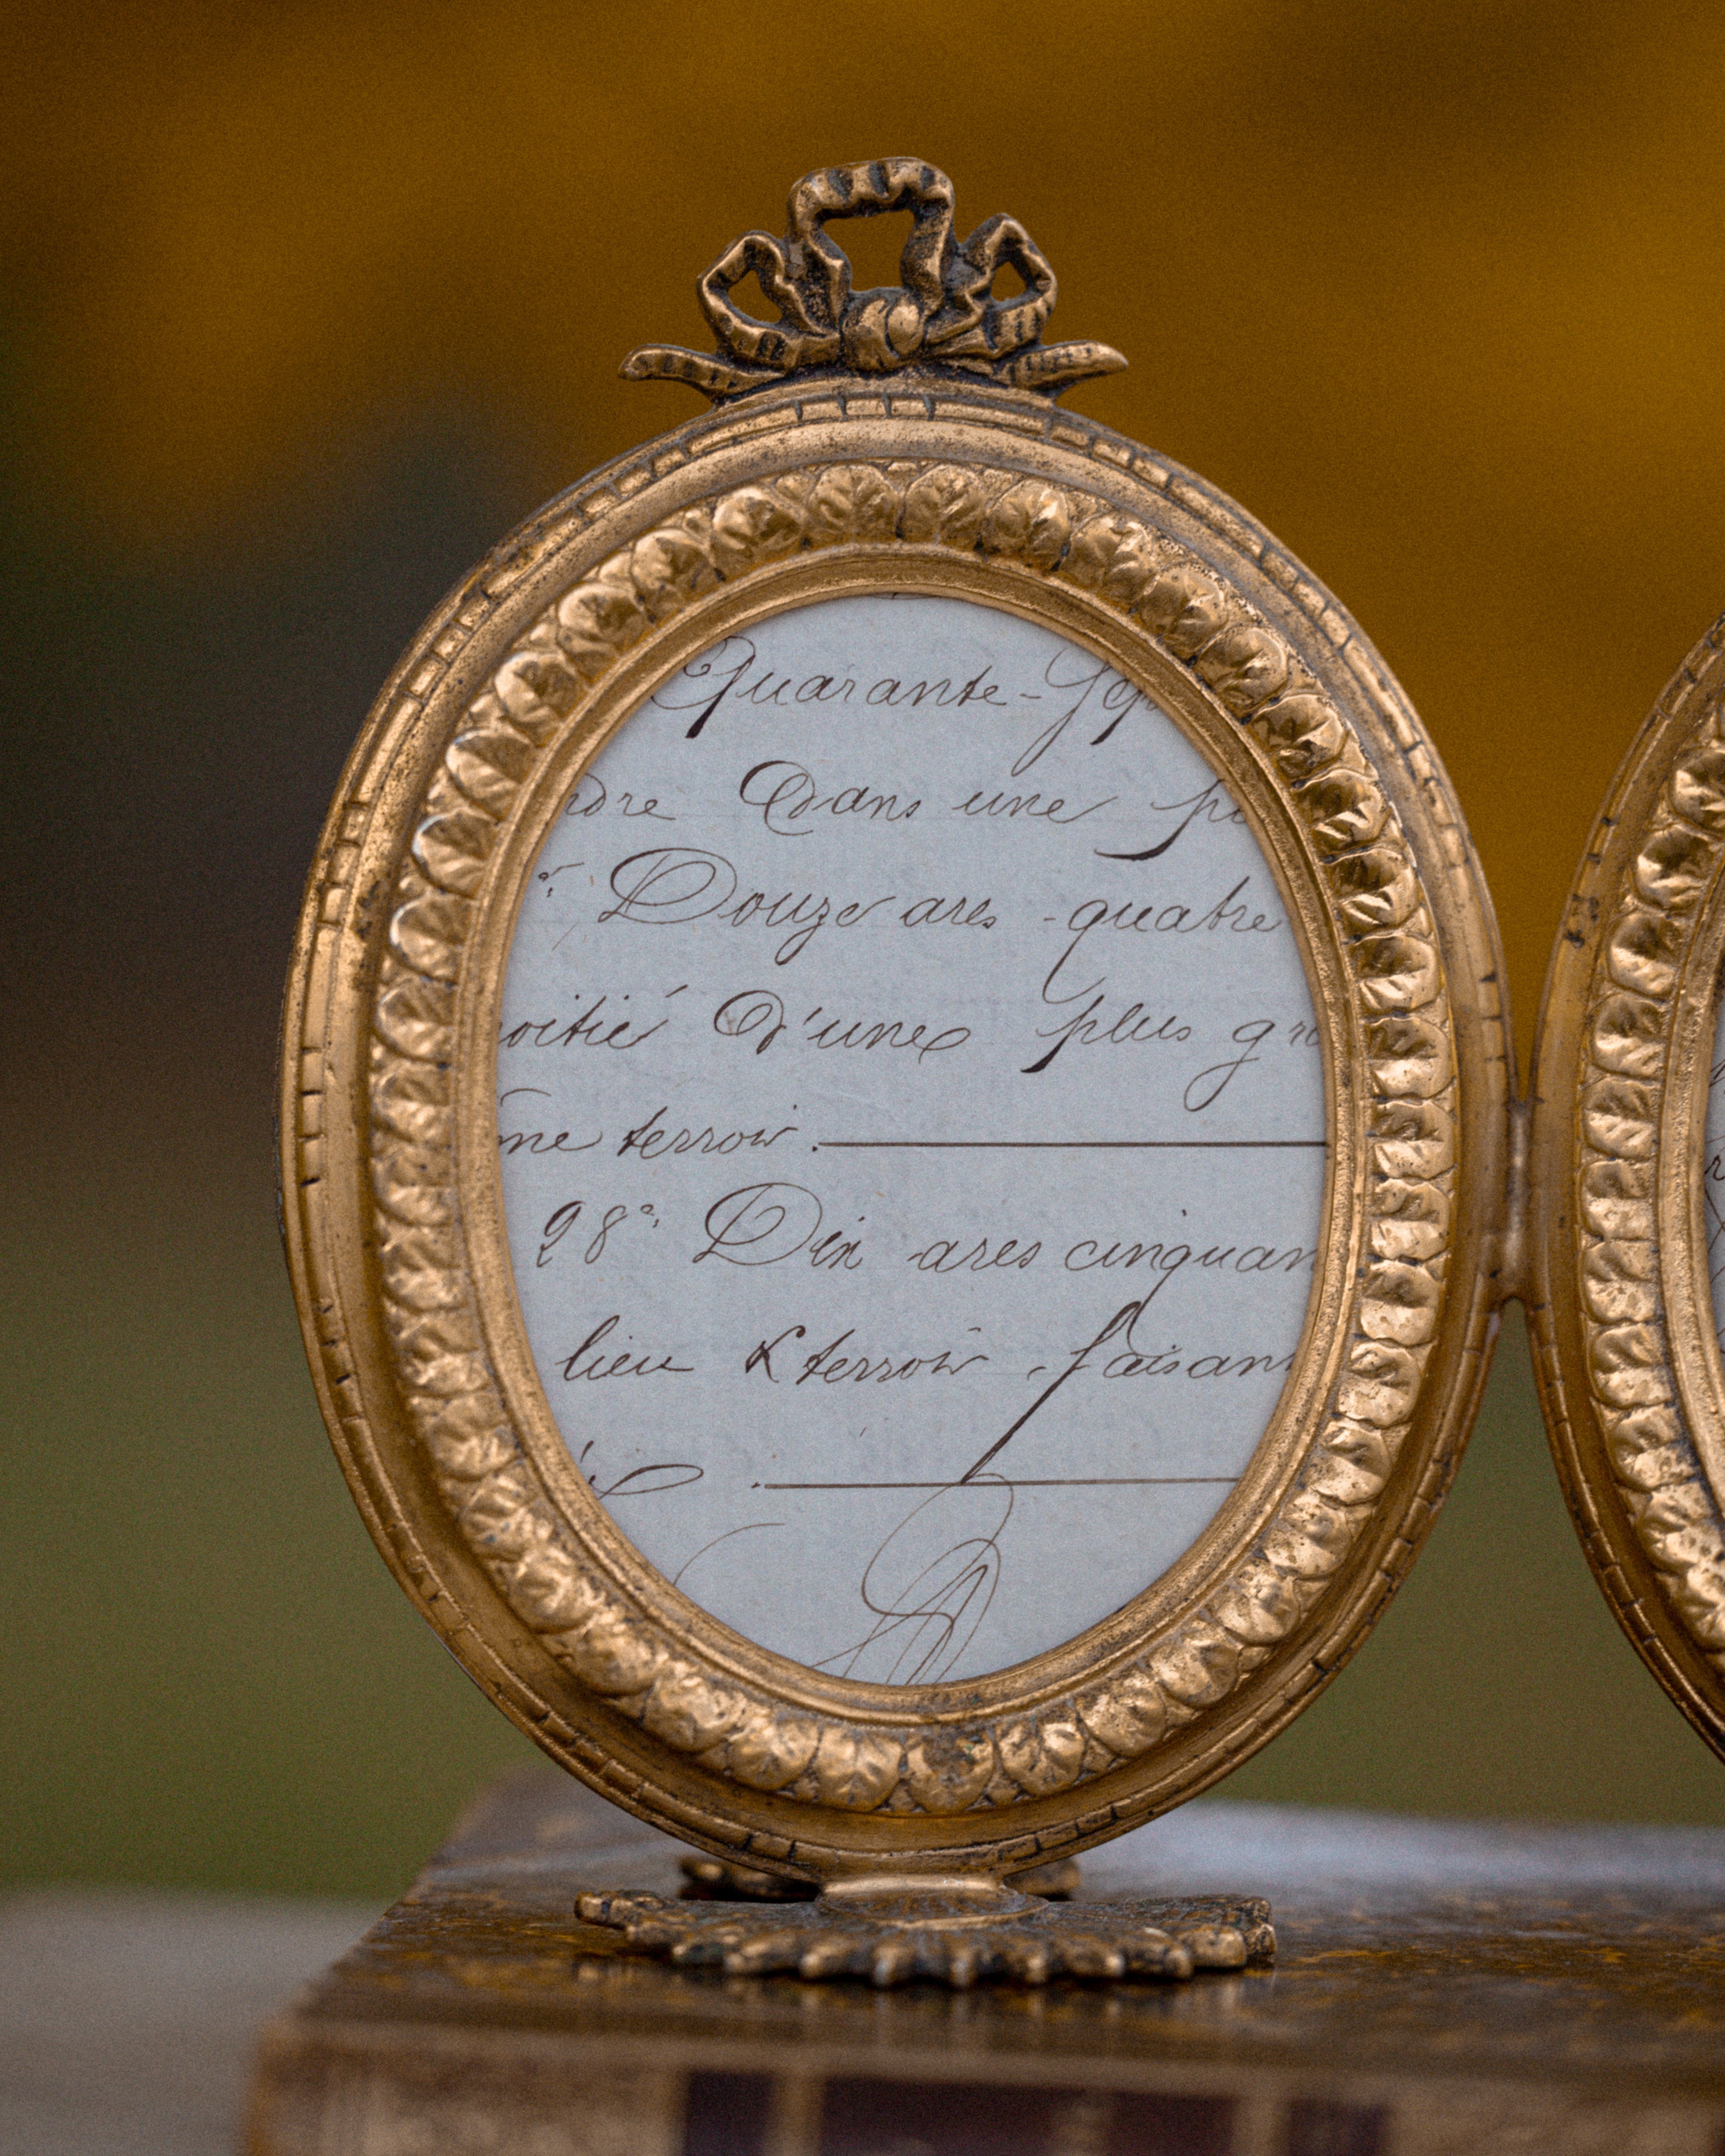 Quarante-Sep
ndre dans une pi
Douze ares quatre
oitié d'une plus gr
me terroir.
28° Dix ares cinquan
lieu & terroir faisant